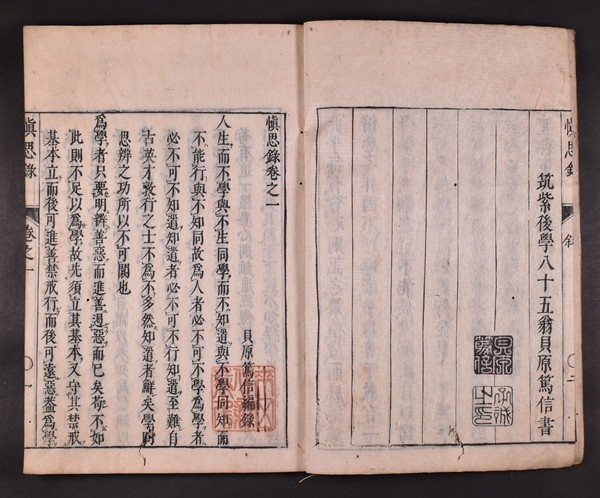 愼思錄 叙 〇二
筑紫後學八十五翁貝原篤信書
貝原篤信
子誠之印
愼思錄卷之一
貝原篤信編錄
人生而不學與不生同學而不知道與不學同知而
不能行與不知同故爲人者必不可不學爲學者
必不可不知道知道者必不可不行知道至難自
古英才敦行之士不爲不多然知道者鮮矣學問
思辨之功所以不可闕也
爲學者只要明辨善惡而進善遏惡而已矣苟不如
此則不足以爲學故先須立其基本又守其禁戒
基本立而後可進善禁戒行而後可遠惡蓋爲學
愼思錄 卷之一 〇一